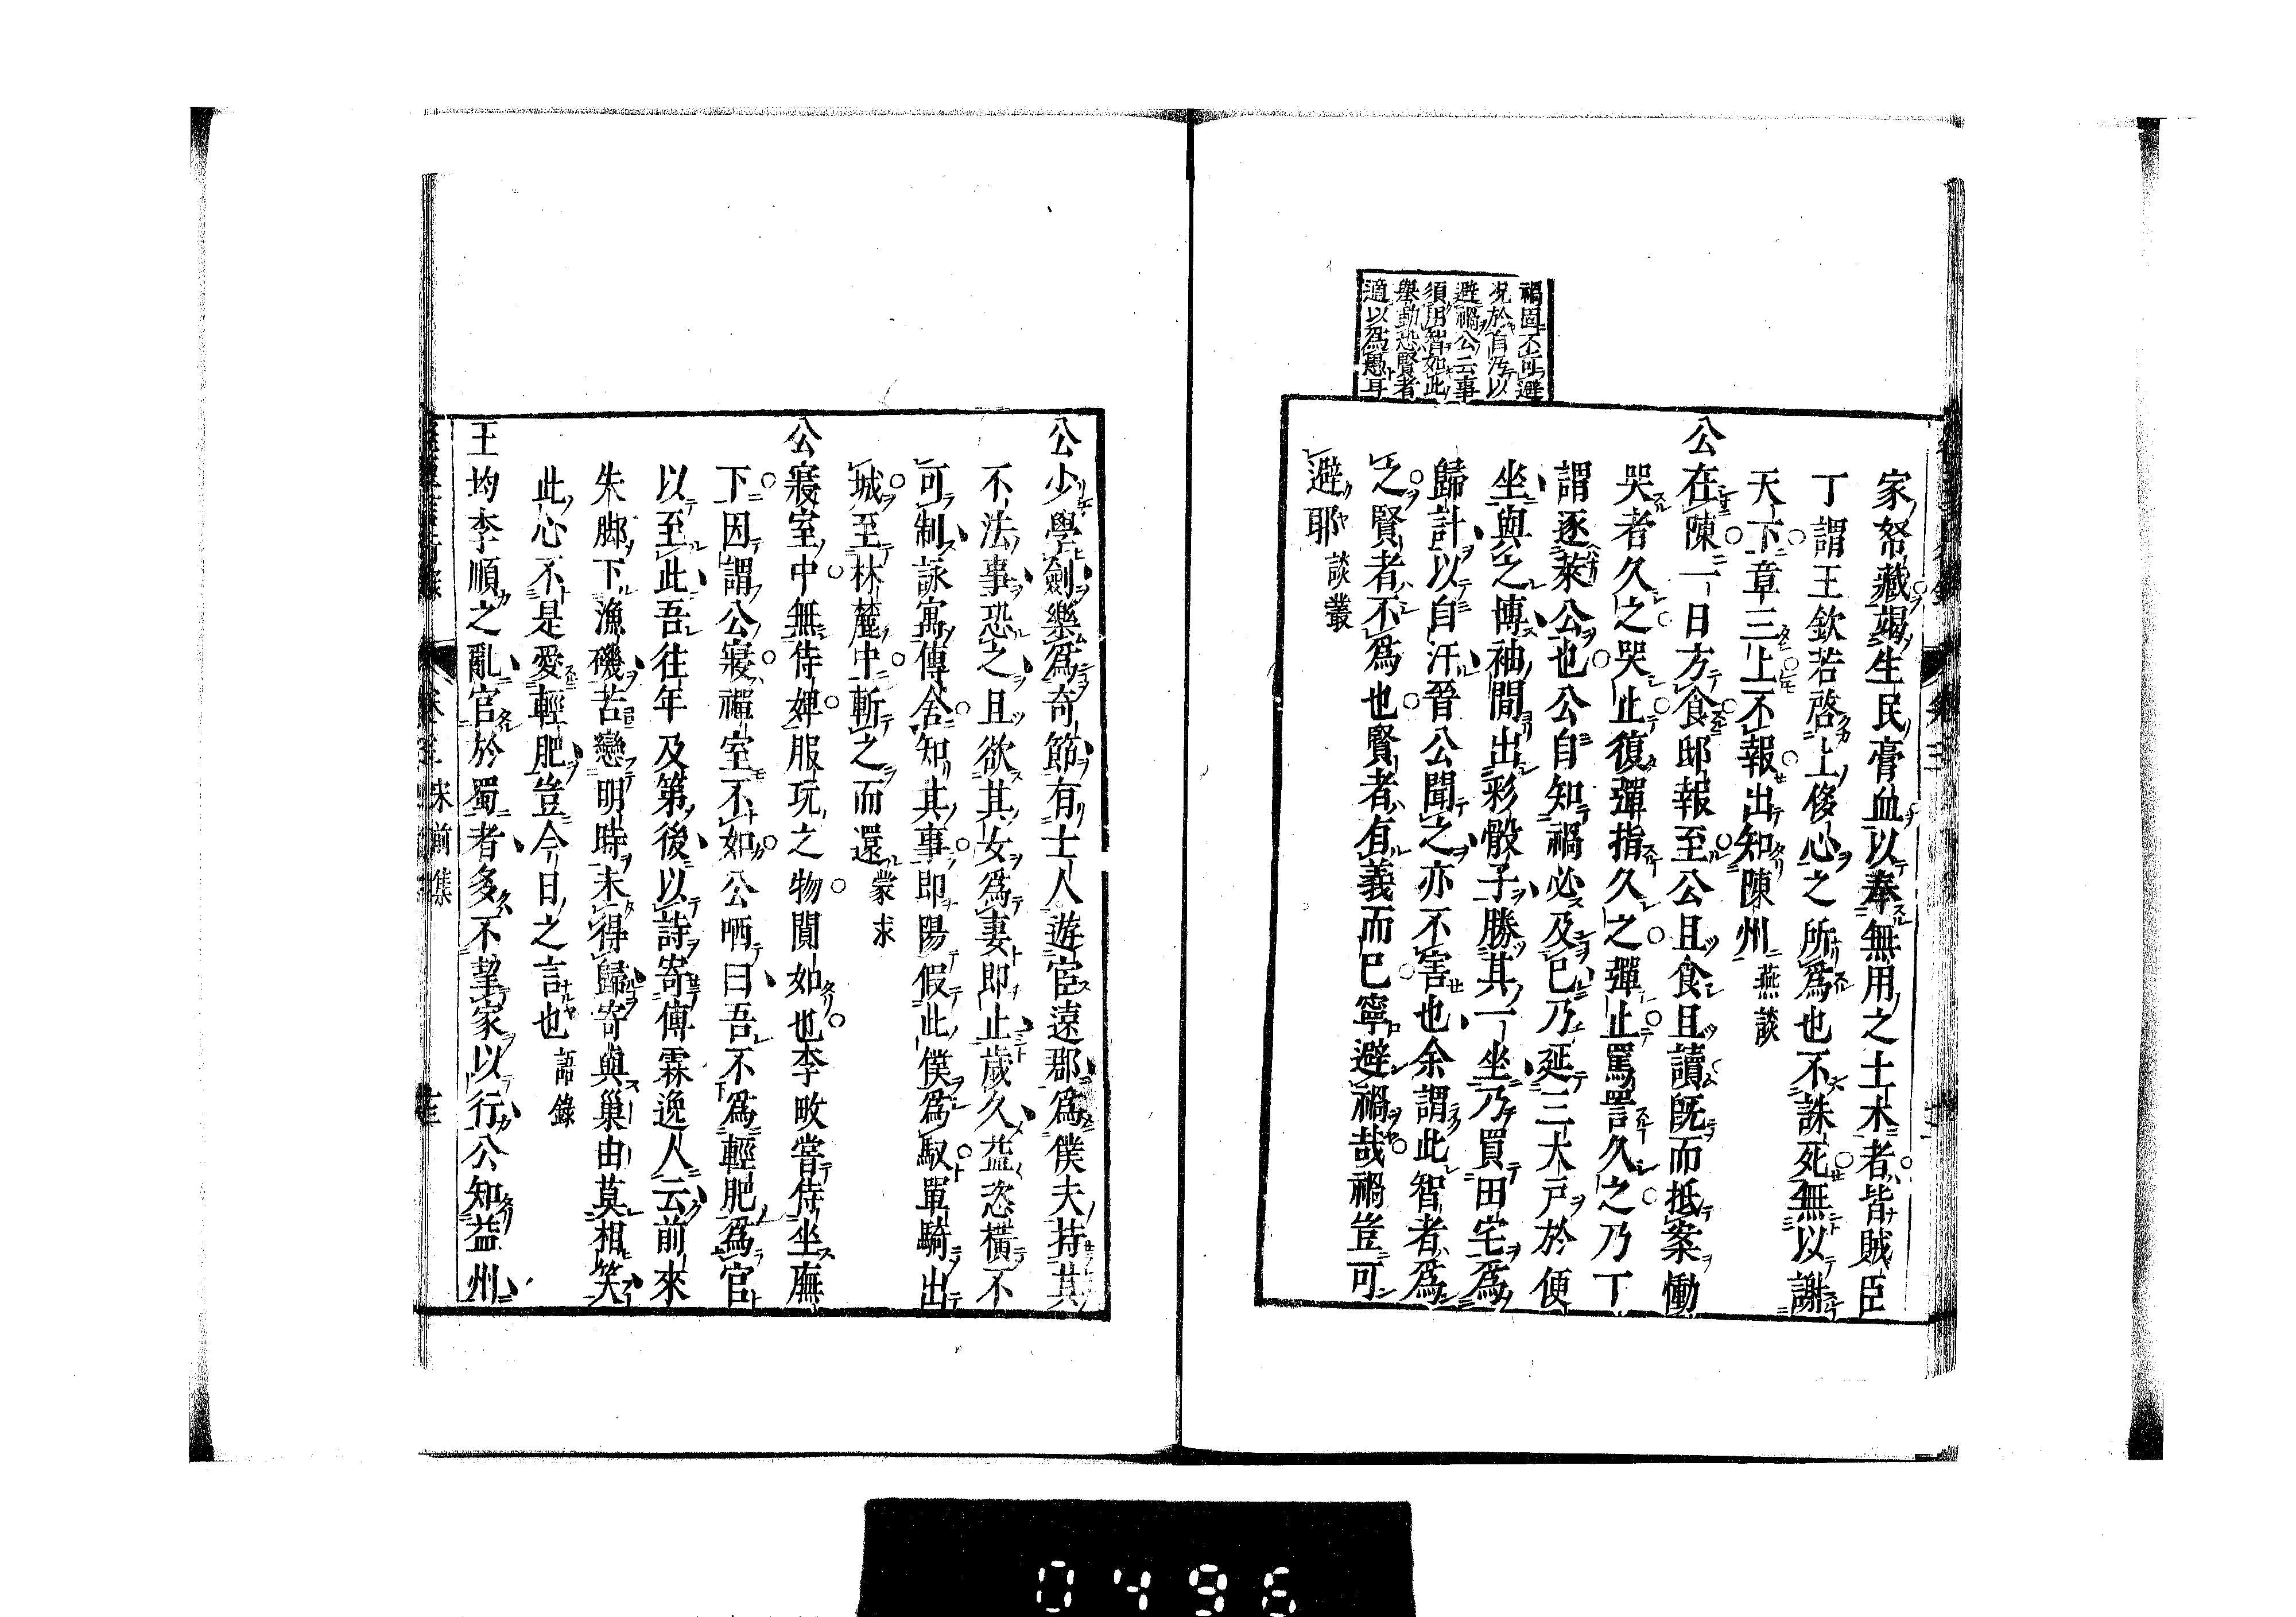 禍固不可避
況於自汚以
避禍公云事
須用智如此
舉動恐賢者
適以為愚耳
家帑藏竭生民膏血以奉無用之土木者皆賊臣
丁謂王欽若啓上侈心之所為也不誅死無以謝
天下章三上不報出知陳州 燕談
公在陳一日方食邸報至公且食且讀既而抵案慟
哭者久之哭止復彈指久之彈止罵詈久之乃丁
謂逐萊公也公自知禍必及已乃延三大戸於便
坐與之博袖間出彩骰子勝其一坐乃買田宅為
歸計以自汙晉公聞之亦不害也余謂此智者為
之賢者不為也賢者有義而已寧避禍哉禍豈可
避耶 談叢
公少學劍樂為奇節有士人遊宦遠郡為僕夫持其
不法事恐之且欲其女為妻即止歲久益恣橫不
可制詠寓傳舍知其事即陽假此僕為馭單騎出
城至林麓中斬之而還 蒙求
公寢室中無侍婢服玩之物闃如也李畋嘗侍坐廡
下因謂公寢禪室不如公哂曰吾不為輕肥為官
以至此吾往年及第後以詩寄傅霖逸人云前來
失脚下漁磯苦戀明時未得歸寄與巢由莫相笑
此心不是愛輕肥豈今日之言也 語錄
王均李順之亂官於蜀者多不挈家以行公知益州
宋前集
0496